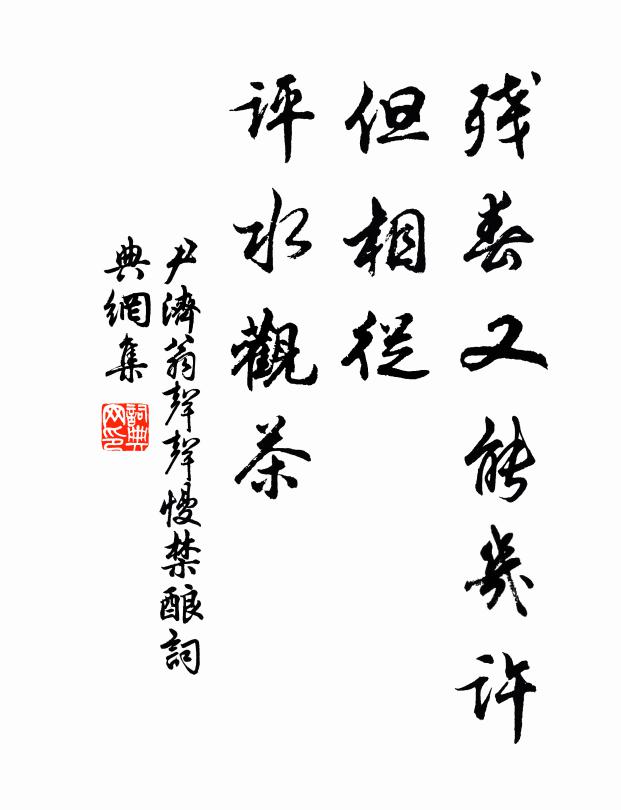 残春又能幾許
但相從
評水觀茶
尹濟翁聲聲慢禁酿詞
典網集
詞典
网印